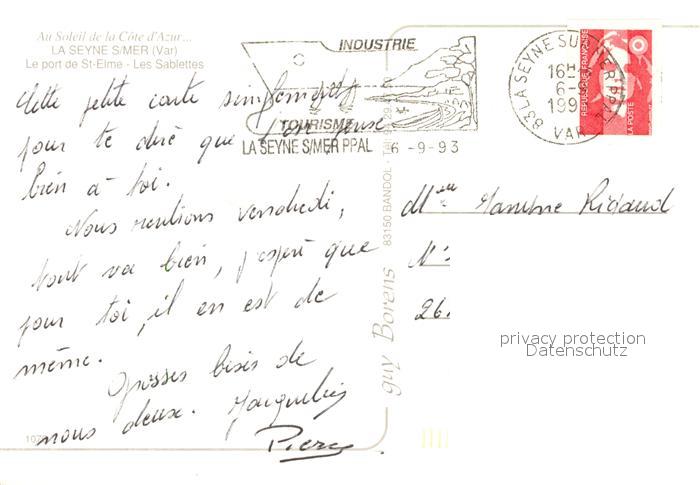 Au Soleil de la Côte d'Azur...
LA SEYNE S/MER (Var)
Le port de St-Elme - Les Sablettes
Cette petite carte simplement
pour te dire que j'on pense
bien à toi.
Nous rentions vendredi,
tout va bien, j'espère que
pour toi, il en est de
même.
Grosses bises de
nous deux. Jacqueline
Pierre
INDUSTRIE
TOURISME
LA SEYNE S/MER PPAL 6-9-93
83 LA SEYNE SUR MER PPAL
16H
6-9
199
VAR
REPUBLIQUE FRANÇAISE
LA POSTE
guy Borens
83150 BANDOL - Tél.
Mme Rigaud
N:
26.
privacy protection
Datenschutz